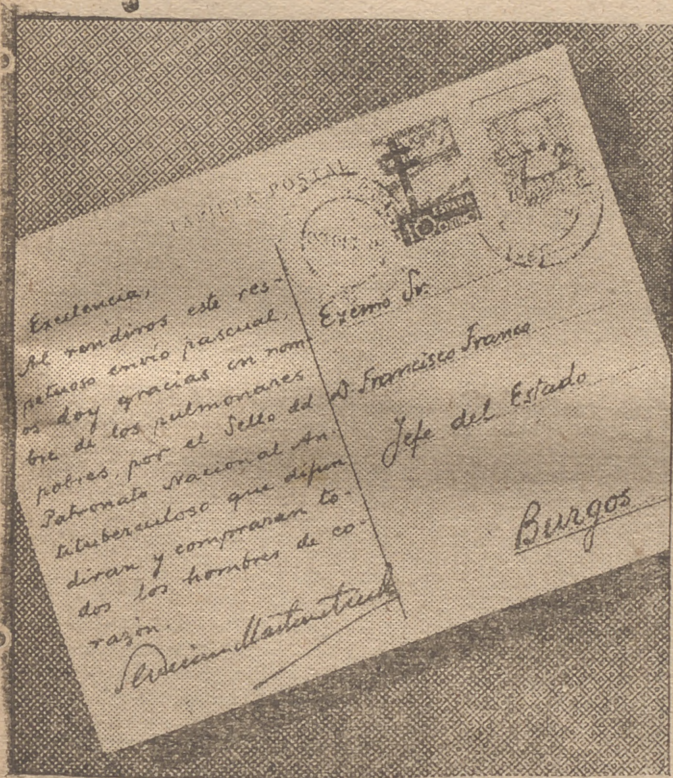 TARJETA POSTAL
ESPAÑA
10
Excelencia,
Al rendiros este res-
petuoso envío pascual,
os doy gracias en nom-
bre de los pulmonares
pobres, por el Sello del
Patronato Nacional An-
tituberculoso que difun
diran y compraran to-
dos los hombres de co-
razón.
Exc̃mo Sr.
D. Francisco Franco
Jefe del Estado
Burgos